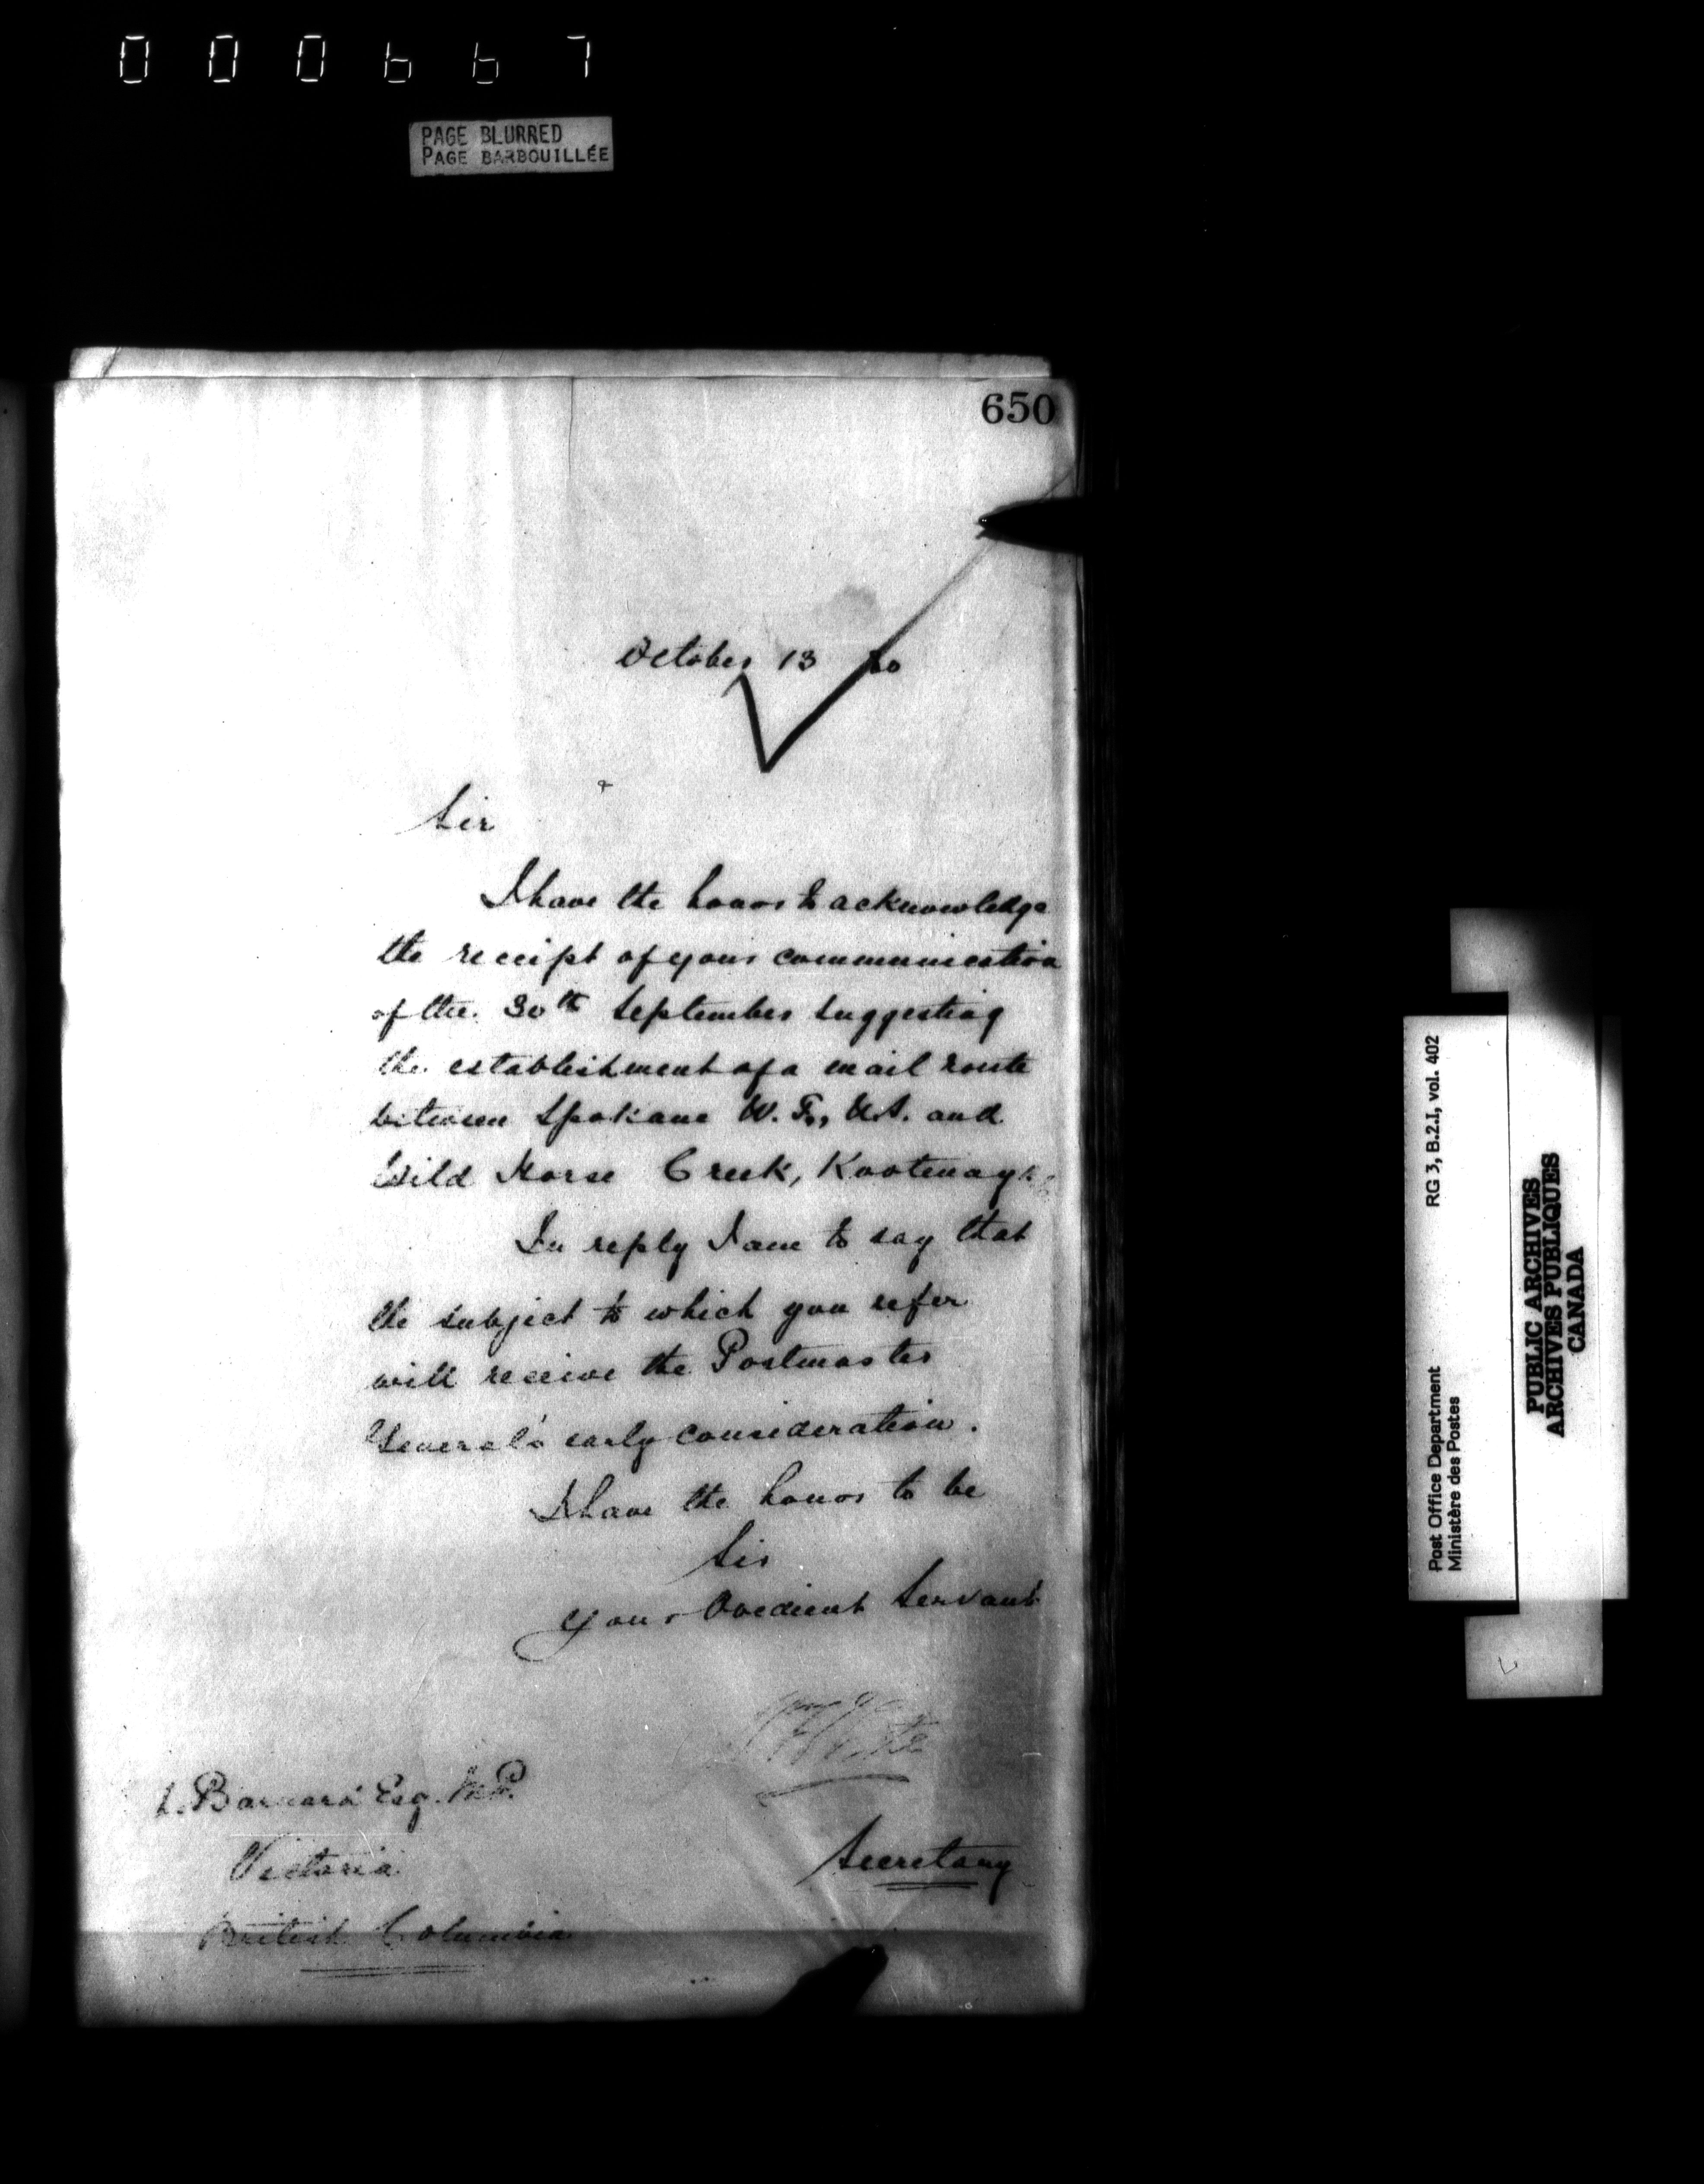 000667
PAGE BLURRED
PAGE BARBOUILLÉE
650
October 13 80
Sir
I have the honor to acknowledge
the receipt of your communication
of the 30th September suggesting
the establishment of a mail route
between Spokane W. T., U.S. and
Wild Horse Creek, Kootenay
In reply I am to say that
the subject to which you refer
will receive the Postmaster
General's early consideration.
I have the honor to be
Sir
Your Obedient Servant
White
Secretary
Barnard Esq. M.P.
Victoria
British Columbia
RG 3, B.2.I, vol. 402
Post Office Department
Ministère des Postes
PUBLIC ARCHIVES
ARCHIVES PUBLIQUES
CANADA